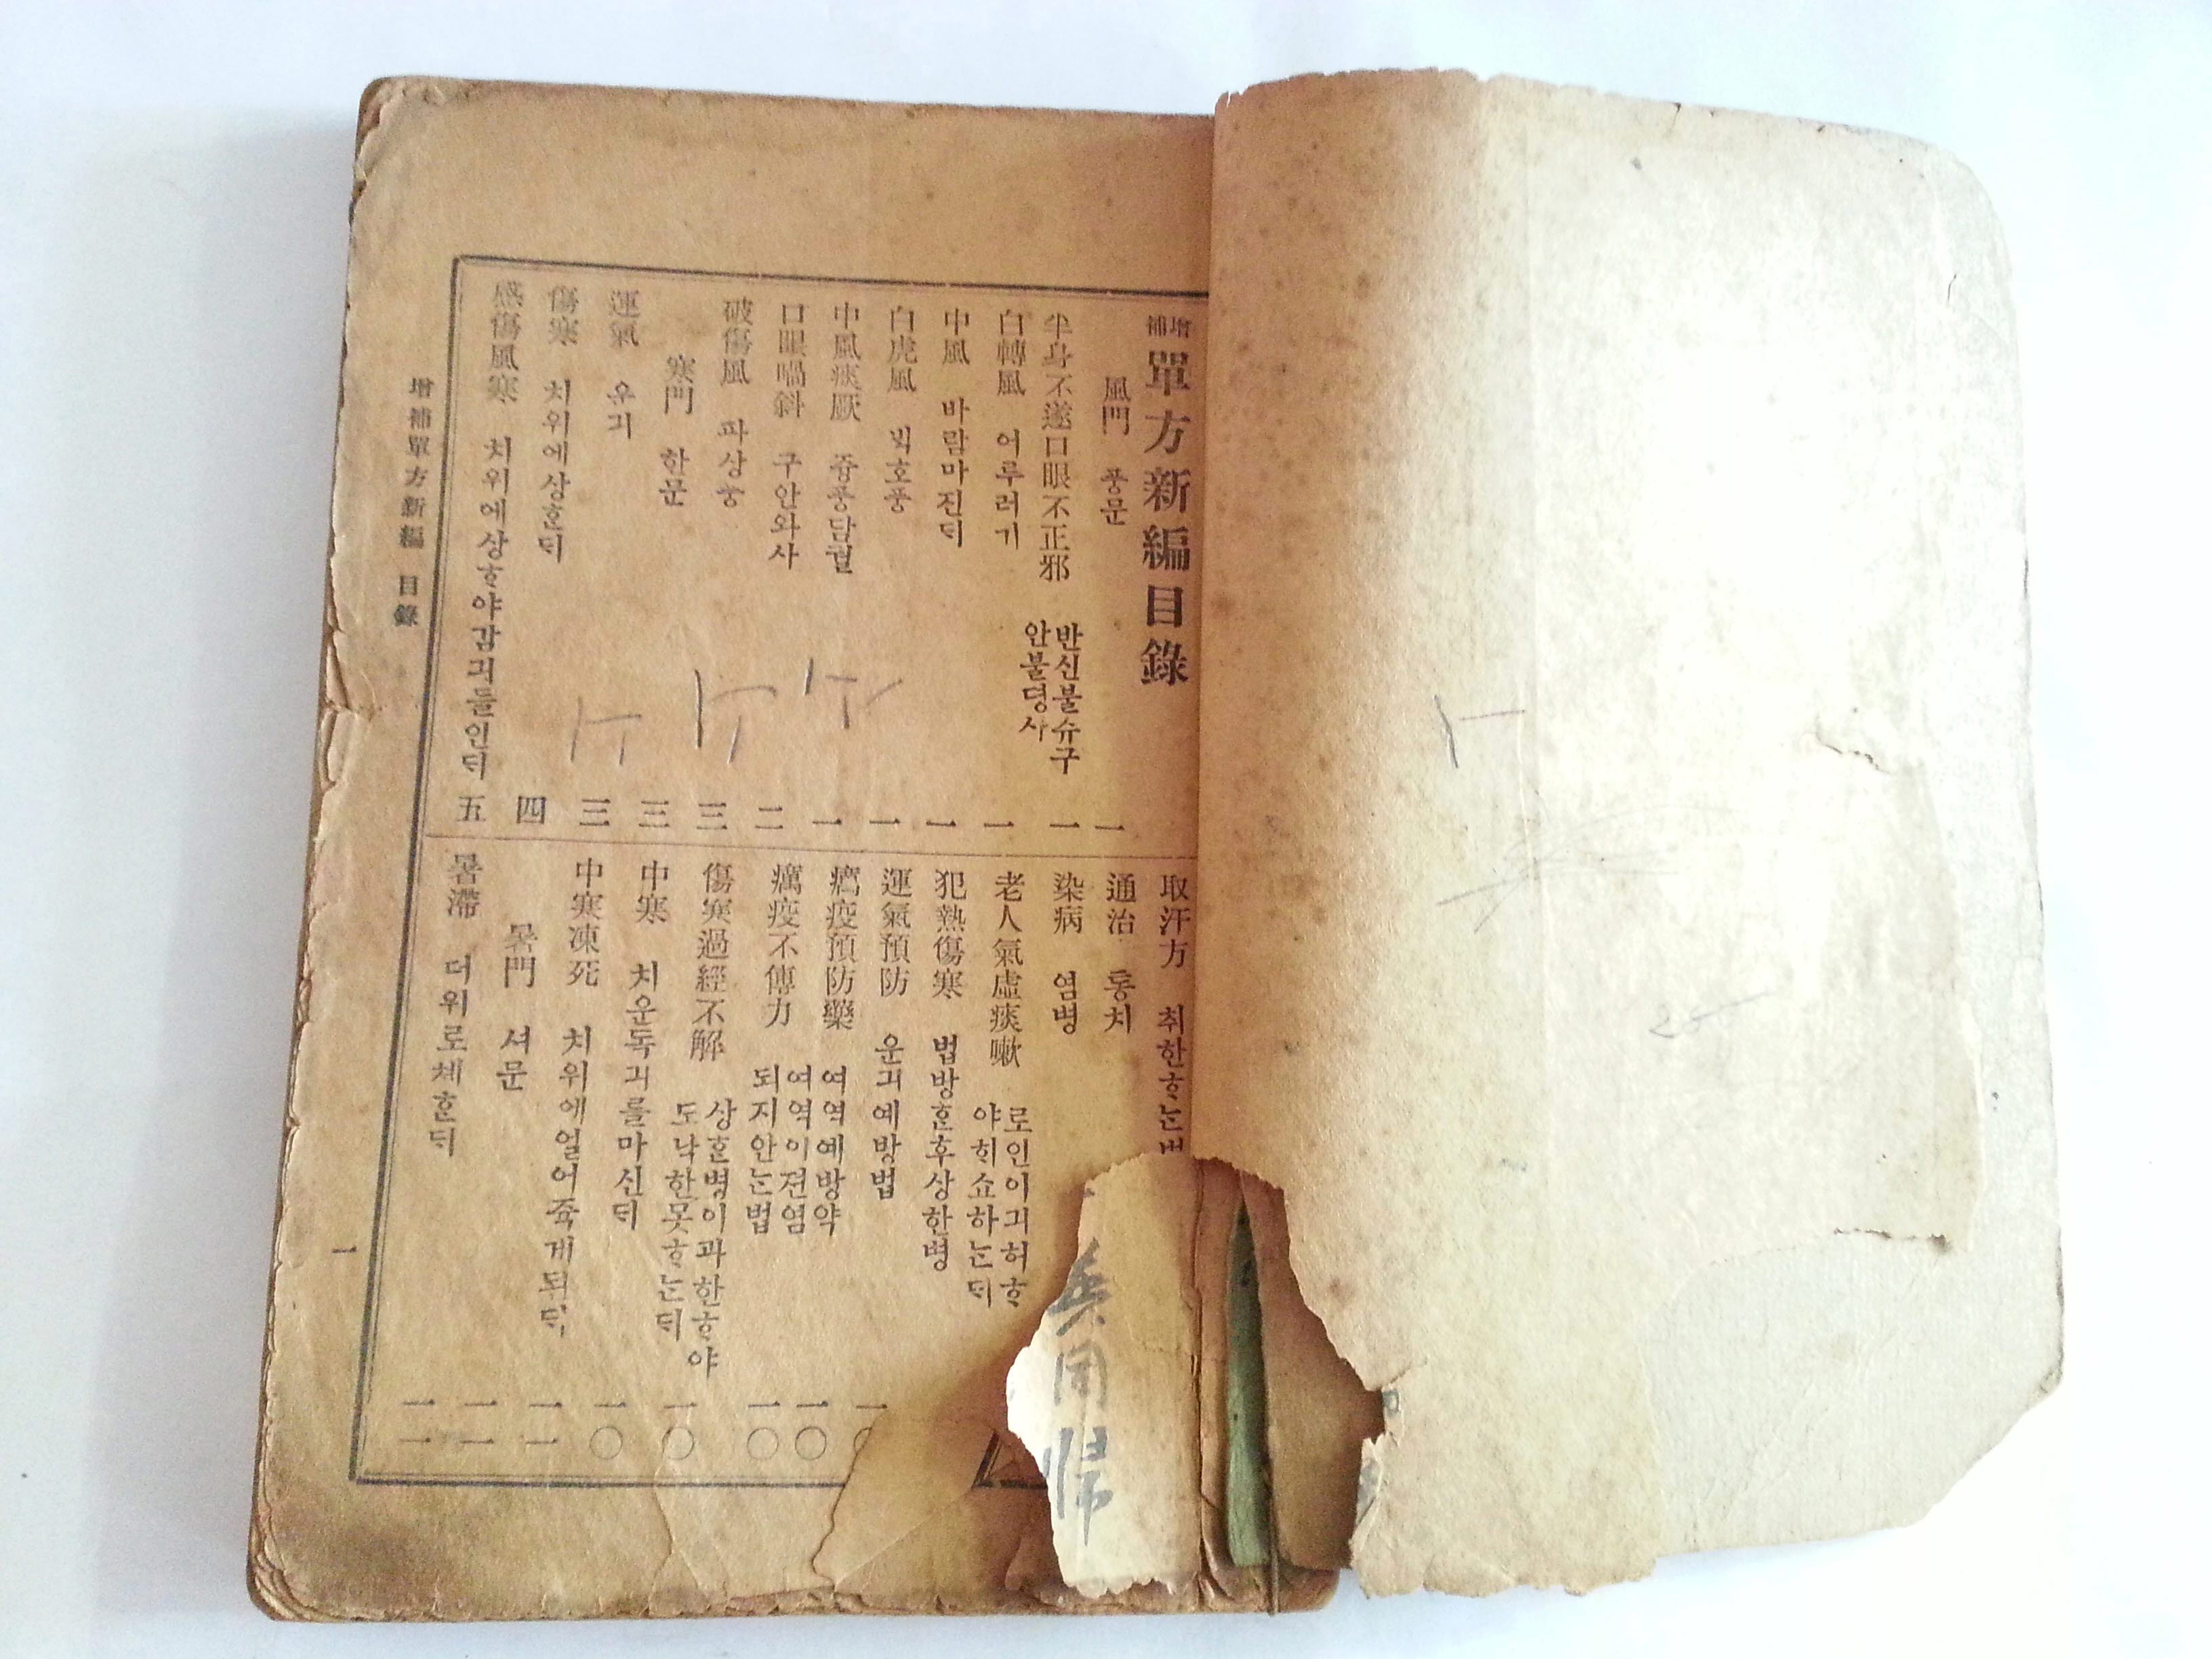 增補 單方新編目錄
風門 풍문 一
半身不遂口眼不正邪 반신불슈구안불뎡사 一
白轉風 어루러기 一
中風 바람마진ᄃᆡ 一
白虎風 ᄇᆡᆨ호풍 一
中風痰厥 즁풍담궐 一
口眼喎斜 구안와사 二
破傷風 파상풍 三
寒門 한문 三
運氣 운긔 三
傷寒 치위에상ᄒᆞᆫᄃᆡ 四
感傷風寒 치위에상ᄒᆞ야감긔들인ᄃᆡ 五
取汗方 취한ᄒᆞᄂᆞᆫ
通治 통치
染病 염병
老人氣虛痰嗽 로인이긔허ᄒᆞ야ᄒᆡ쇼하ᄂᆞᆫᄃᆡ
犯熱傷寒 법방ᄒᆞᆫ후상한병
運氣預防 운긔예방법
癘疫預防藥 여역예방약 一〇
癘疫不傳力 여역이젼염되지안ᄂᆞᆫ법 一〇
傷寒過經不解 상ᄒᆞᆫ병이과한ᄒᆞ야도낙한못ᄒᆞᄂᆞᆫᄃᆡ 一〇
中寒 치운독긔를마신ᄃᆡ 一〇
中寒凍死 치위에얼어쥭게된ᄃᆡ 一一
暑門 셔문 一一
暑滯 더위로체ᄒᆞᆫᄃᆡ 一一
增補單方新編 目錄
一
25